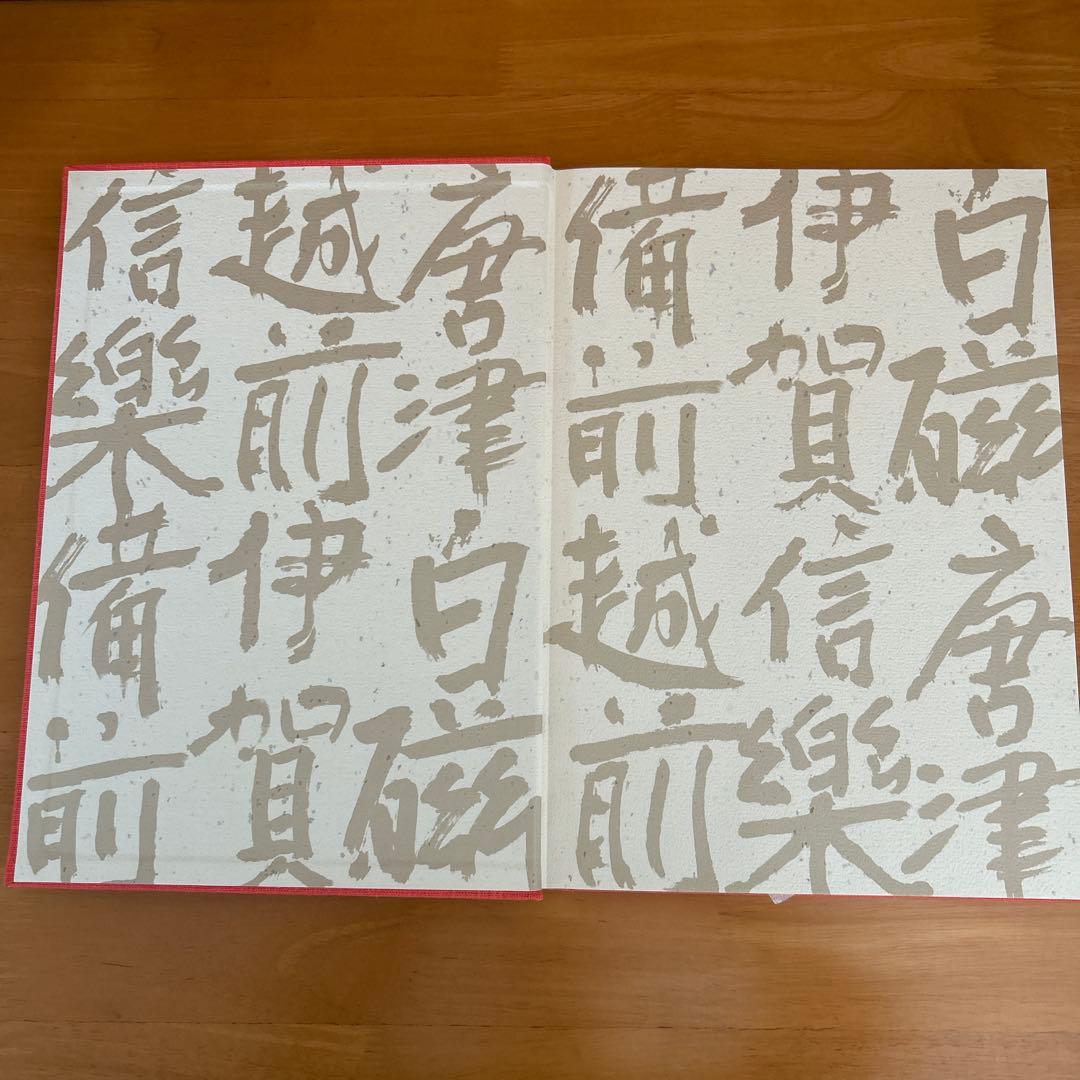 唐津
越前
信樂
白磁
伊賀
備前
白磁
伊賀
備前
唐津
信樂
越前